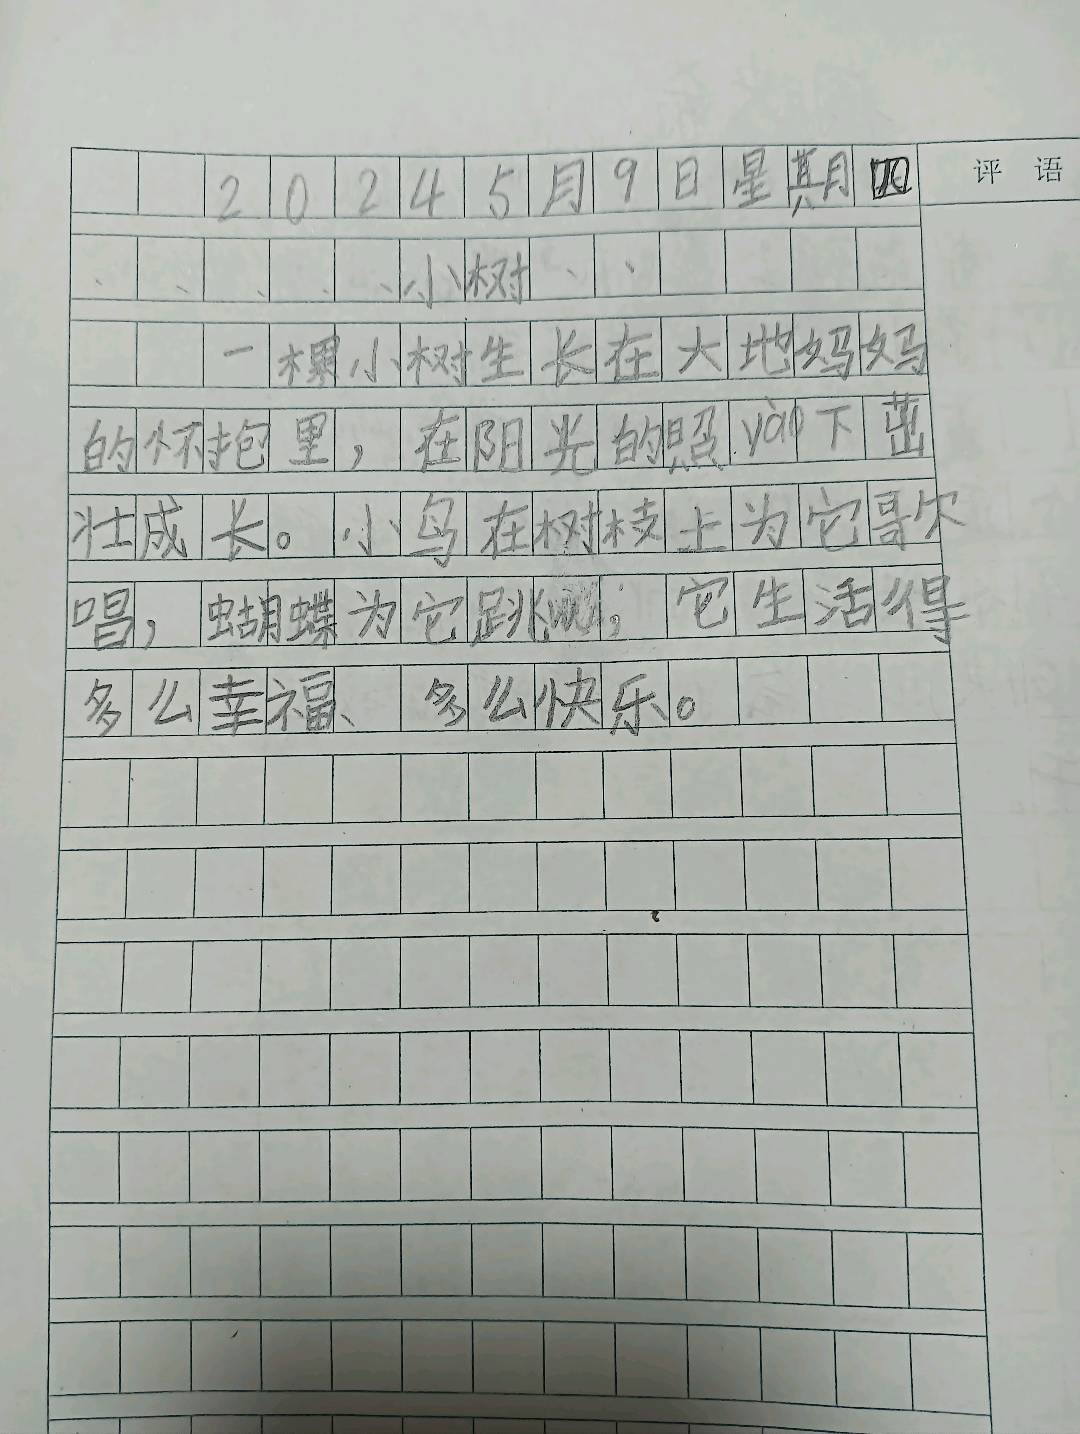 20245月9日星期四 评语
小树
一棵小树生长在大地妈妈
的怀抱里，在阳光的照yào下茁
壮成长。小鸟在树枝上为它歌
唱，蝴蝶为它跳；它生活得
多么幸福、多么快乐。